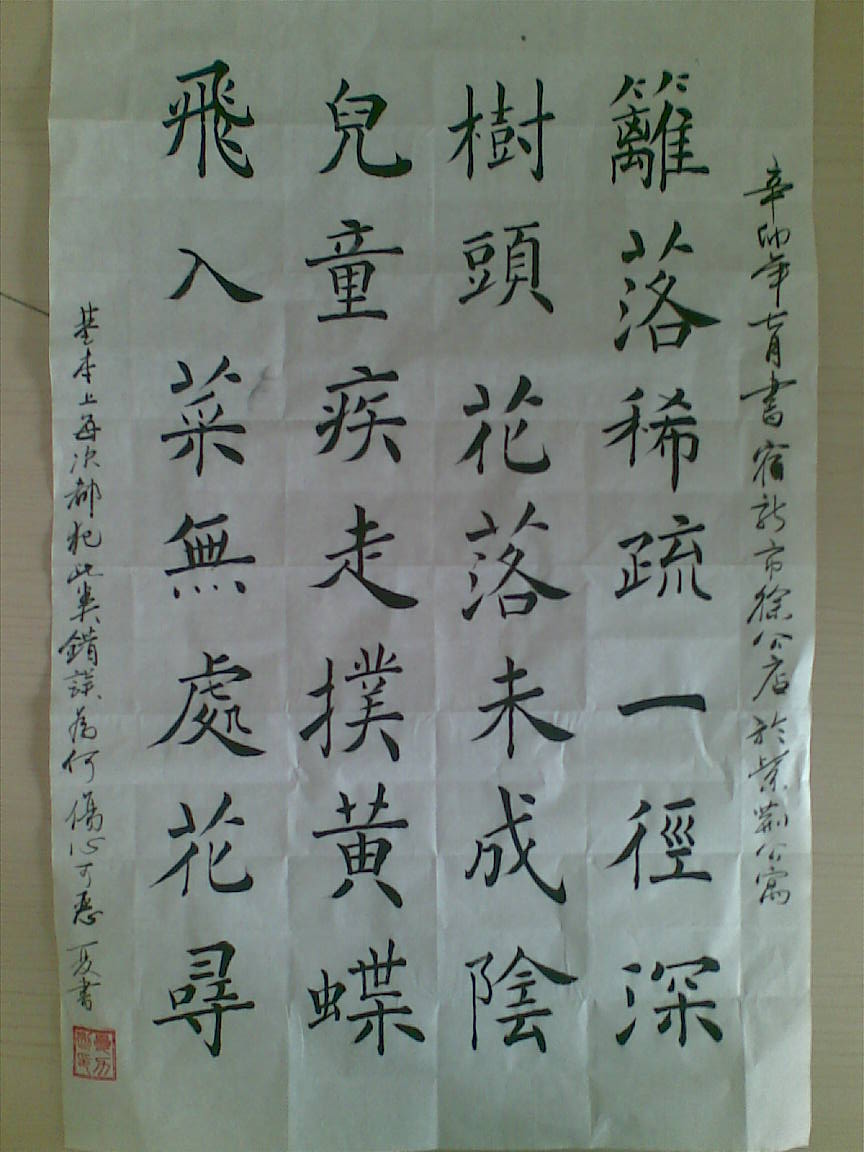 辛卯年七月書宿新市徐公店於紫荆公寓
籬落稀疏一徑深
樹頭花落未成陰
兒童疾走撲黃蝶
飛入菜無處花尋
基本上每次都犯此類錯誤為何傷心可惡 夏書